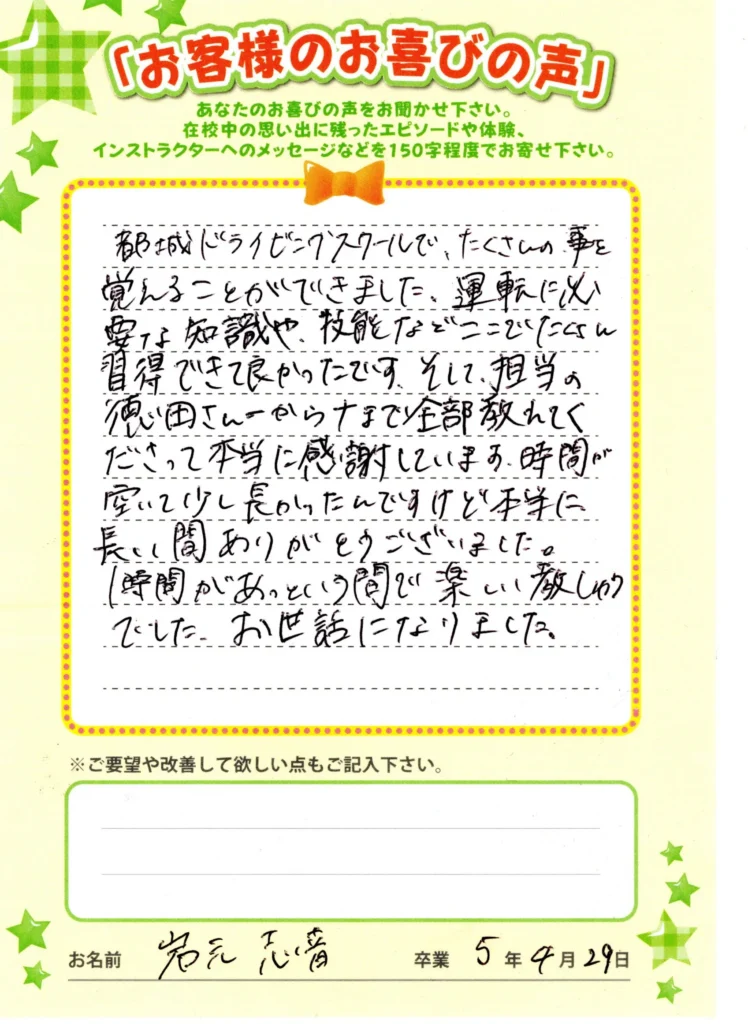 「お客様のお喜びの声」
あなたのお喜びの声をお聞かせ下さい。
在校中の思い出に残ったエピソードや体験、
インストラクターへのメッセージなどを150字程度でお寄せ下さい。
都城ドライビングスクールで、たくさんの事を
覚えることができました、運転に必
要な知識や、技能などここでたくさん
習得できて良かったです、そして、担当の
徳田さん一から十まで全部教えてく
ださって本当に感謝しています、時間が
空いて少し長かったんですけど本当に
長い間ありがとうございました。
1時間があっという間で楽しい教しゅう
でした、お世話になりました。
※ご要望や改善して欲しい点もご記入下さい。
お名前 岩元 志音 卒業 5年4月29日